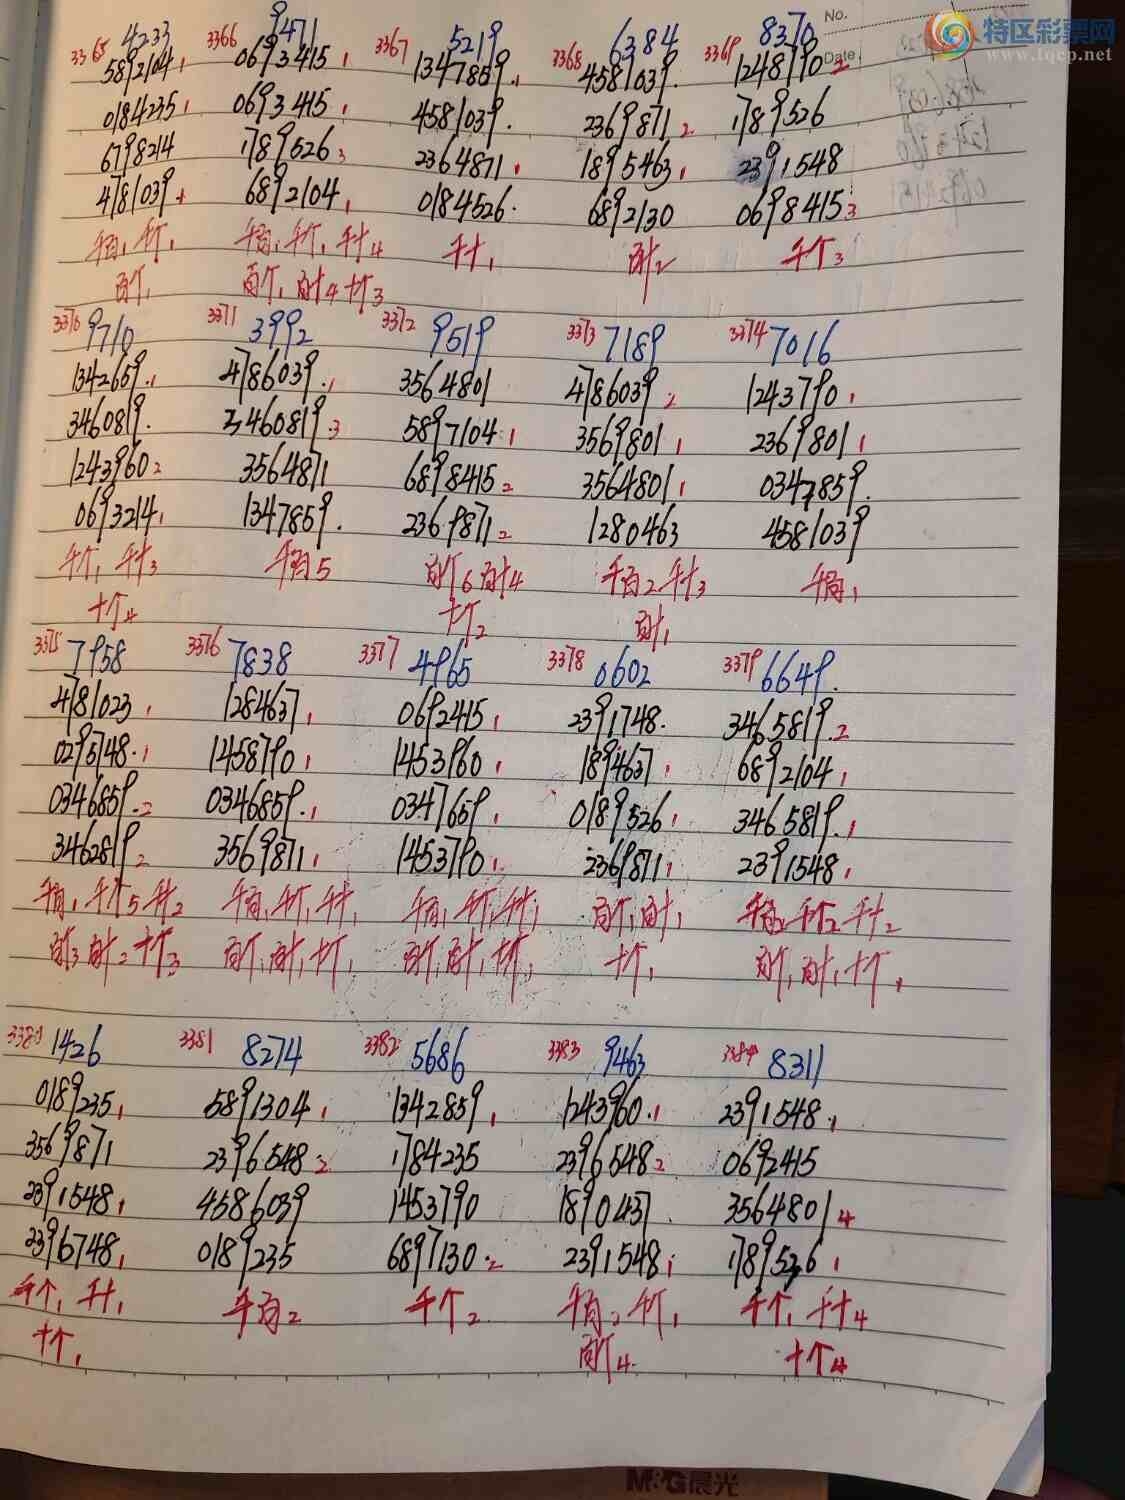 No.
Date
特区彩票网
www.tqcp.net
3365 4233 3366 9471 3367 5219 3368 6384 3369 8370
5892104 1 0693415 1 1347869 1 4581039. 1248790 2
0184235 1 0693415 1 4581039. 2369871 2 1789526
6798214 1789526 3 2364871 1 1895463 1 2391548
4781039 4 6892104 1 0184526. 6892130 0698415 3
千百1 千个1 千百1 千个1 千十4 千十1 百十2 千个3
百个1 百个1 百十4 十个3
3370 9710 3371 3992 3372 9519 3373 7189 3374 7016
1342659.1 4786039.1 3564801 4786039 2 1243790 1
3460819. 23460819.3 5897104 1 3569801 1 2369801 1
1243960 2 3564871 6898415 2 3564801 1 0347859.
0693214 1 1347859. 2369871 2 1280463 4581039
千个1 千十3 千百5 百个6 百十4 千百2 千十3 千百1
十个4 十个2 百十1
3375 7958 3376 7838 3377 4965 3378 0602 3379 6649.
4781023 1 1284637 1 0692415 1 2391748. 3465819.2
0295748.1 1458790 1 1453960 1 1894637 1 6892104 1
0346859.2 0346859.1 0347659 1 0189526 1 3465819.1
3462819 2 3569871 1 1453790 1 2369871 1 2391548 1
千百1 千个5 千十2 千百1 千个1 千十1 千百1 千个1 千十1 百个1 百十1 千百2 千个2 千十2
百个3 百十2 十个3 百个1 百十1 十个1 百个1 百十1 十个1 十个1 百个1 百十1 十个1
3380 1426 3381 8274 3382 5686 3383 9463 3384 8311
0189235 1 5891304 1 1342859 1 1243960.1 2391548.1
3569871 2396548 2 1784235 2396548 2 0692415
2391548 1 4586039 1453790 1890437. 3564801 4
2396748 1 0189235 6897130.2 2391548 1 1789526 1
千个1 千十1 千百2 千个2 千百2 千个1 千个1 千十4
十个1 百个4. 十个4
M&G晨光